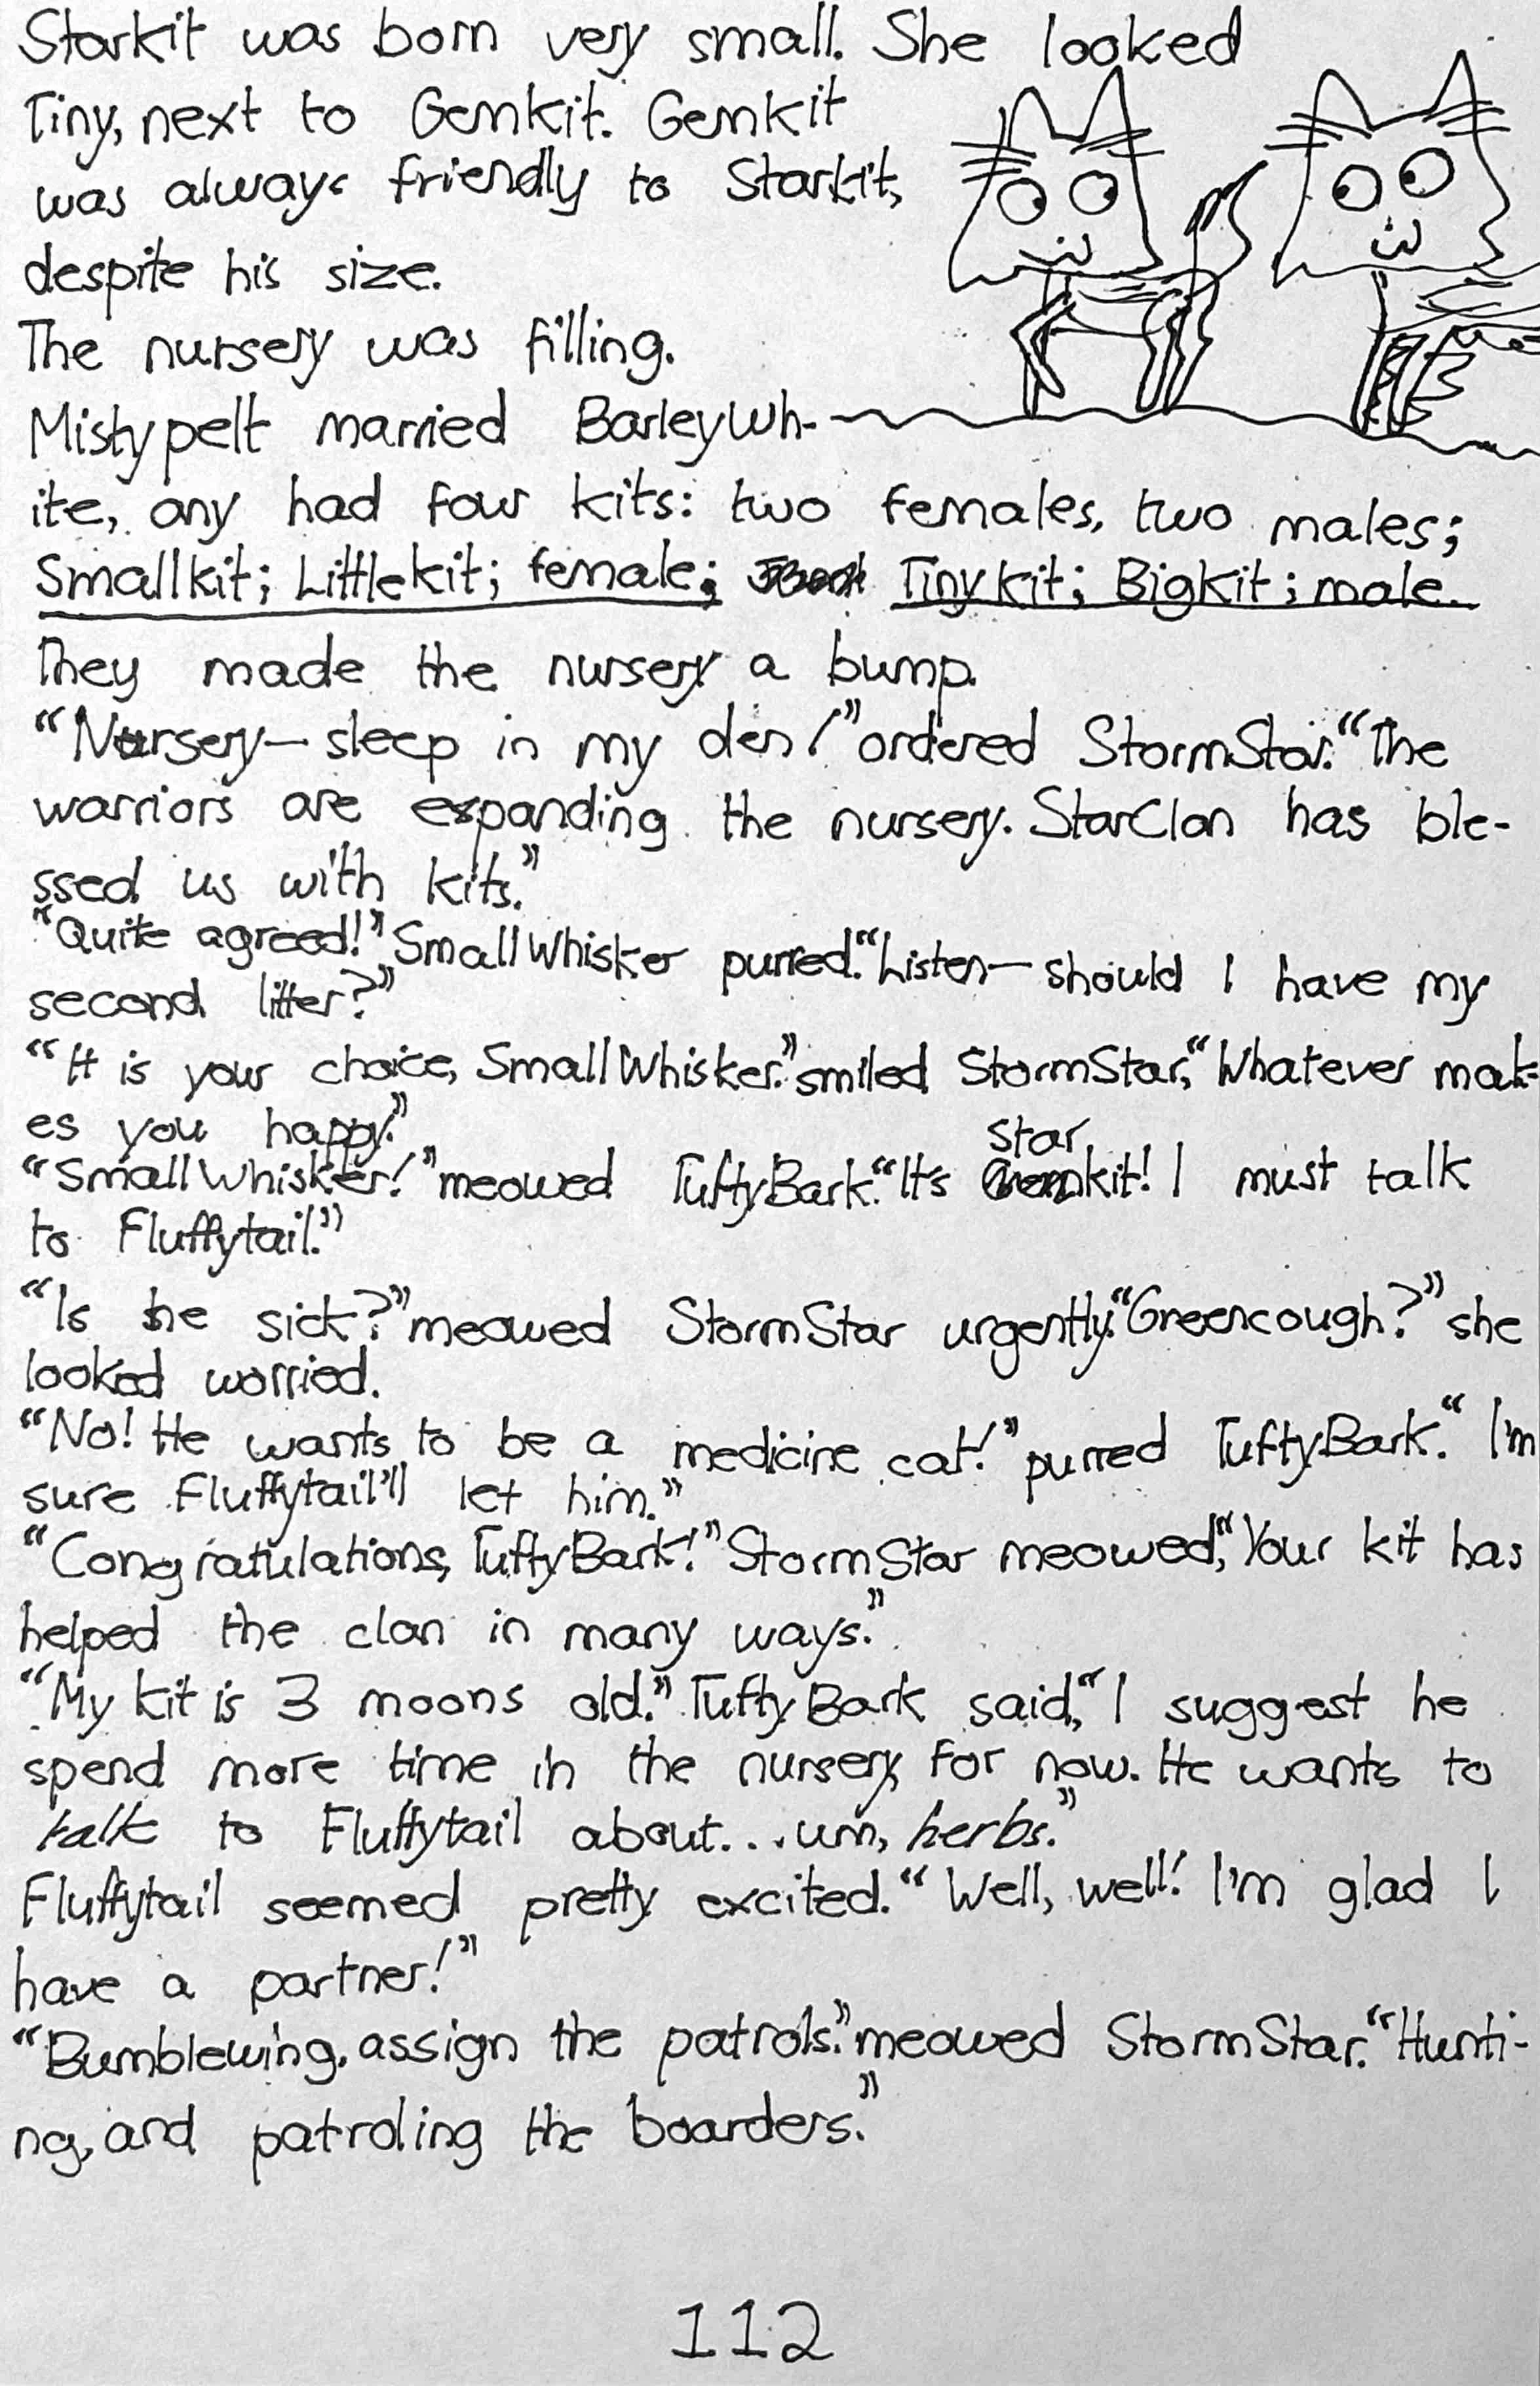 Starkit was born very small. She looked
Tiny, next to Gemkit. Gemkit
was always friendly to Starkit,
despite his size.
The nursery was filling.
Mistypelt married BarleyWh-
ite, any had four kits: two females, two males;
Smallkit; Littlekit; female; Tinykit; Bigkit; male.
They made the nursery a bump.
“Nursery—sleep in my den!” ordered StormStar. “The
warriors are expanding the nursery. StarClan has ble-
ssed us with kits.”
“Quite agreed!” SmallWhisker purred. “Listen—should I have my
second litter?”
“It is your choice, SmallWhisker.” smiled StormStar, “Whatever mak-
es you happy.”
“SmallWhisker!” meowed TuftyBark. “It's Starkit! I must talk
to Fluffytail.”
“Is he sick?” meowed StormStar urgently. “Greencough?” she
looked worried.
“No! He wants to be a medicine cat!” purred TuftyBark. “I'm
sure Fluffytail'll let him.”
“Congratulations, TuftyBark!” StormStar meowed, “Your kit has
helped the clan in many ways.”
“My kit is 3 moons old.” TuftyBark said, “I suggest he
spend more time in the nursery, for now. He wants to
talk to Fluffytail about... um, herbs.”
Fluffytail seemed pretty excited. “Well, well! I'm glad I
have a partner!”
“Bumblewing, assign the patrols.” meowed StormStar. “Hunti-
ng, and patroling the boarders.”
112